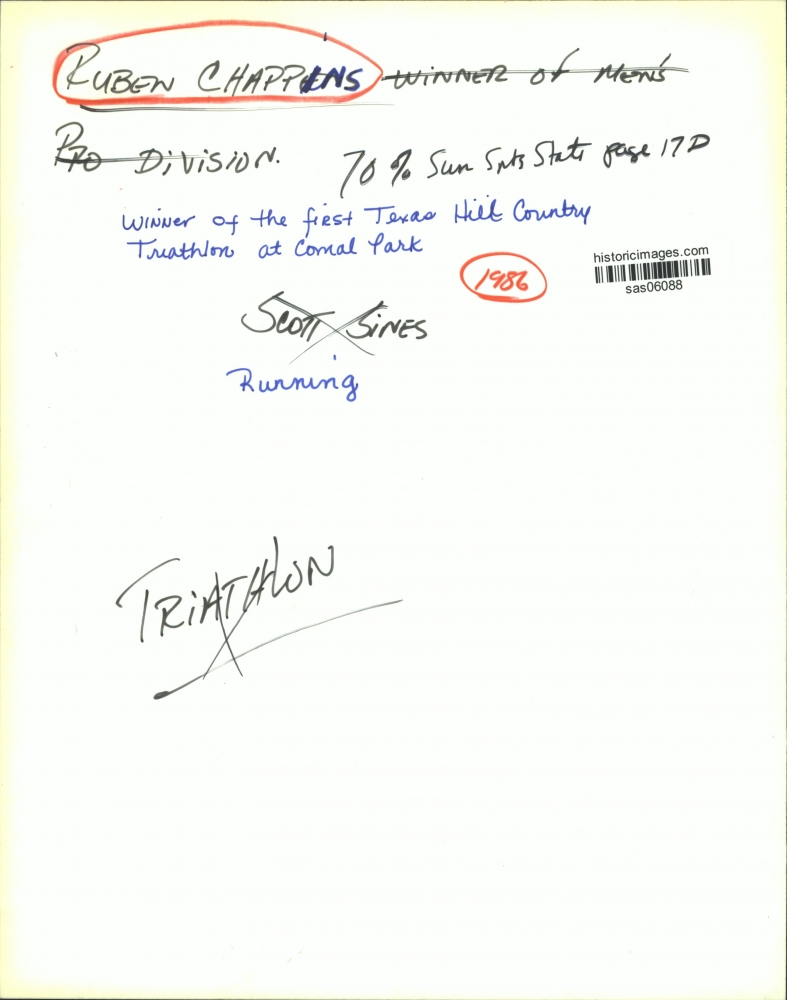 RUBEN CHAPPINS WINNER OF MEN'S
PRO DIVISION. 70 % Sun Spts State page 17D
WINNER of the fIRST Texas Hill Country
Triathlon at Comal Park
1986
historicimages.com
sas06088
SCOTT SINES
Running
TRIATHLON